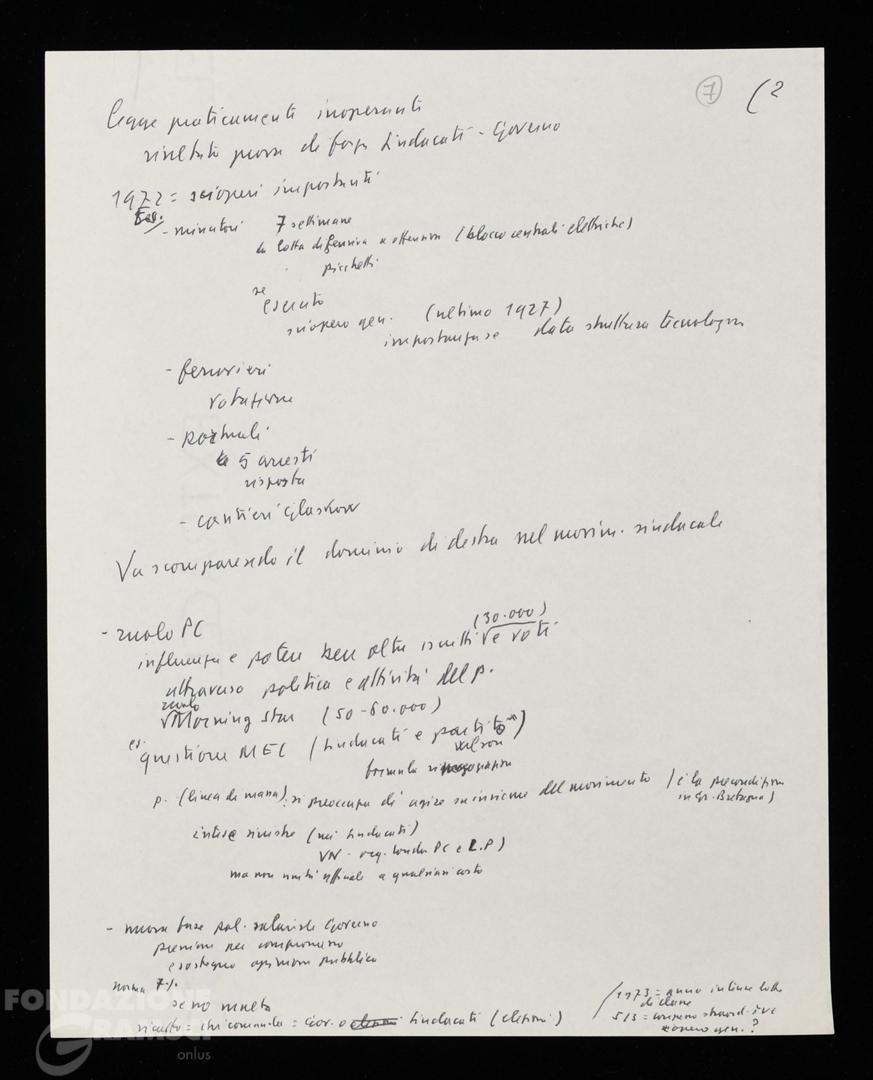 7 (2
legge praticamente inoperante
risultato prova di forza Sindacati - Governo
1972 = scioperi importanti
Feb. - minatori 7 settimane
da lotta difensiva a offensiva (blocco centrali elettriche)
picchetti
se
esercito
sciopero gen. (ultimo 1927)
importanza se data struttura tecnologica
- ferrovieri
rotazione
- portuali
5 arresti
risposta
- cantieri Glaskow
Va scomparendo il dominio di destra nel movim. sindacale
- ruolo PC (30.000)
influenza e potere ben oltre iscritti e voti
attraverso politica e attività del p.
ruolo
Morning Star (50-60.000)
es. questione MEC (sindacati e partito)
Wilson
formula
p. (linea di massa): si preoccupa di agire su insieme del movimento (è la precondizione
in Gr. Bretagna)
intesa sinistre (nei sindacati)
VN - org. Londra PC e L.P)
ma non unità ufficiale a qualsiasi costo
- nuova fase pol. salariale Governo
pressioni per compromesso
e sostegno opinione pubblica
norma 7%
se no multa
ricatto = chi comanda = Gov. o sindacati (elezioni)
1973 = anno intense lotte
di classe
5/3 = congresso straord. TUC
sciopero gen. ?
FONDAZIONE
GRAMSCI
onlus